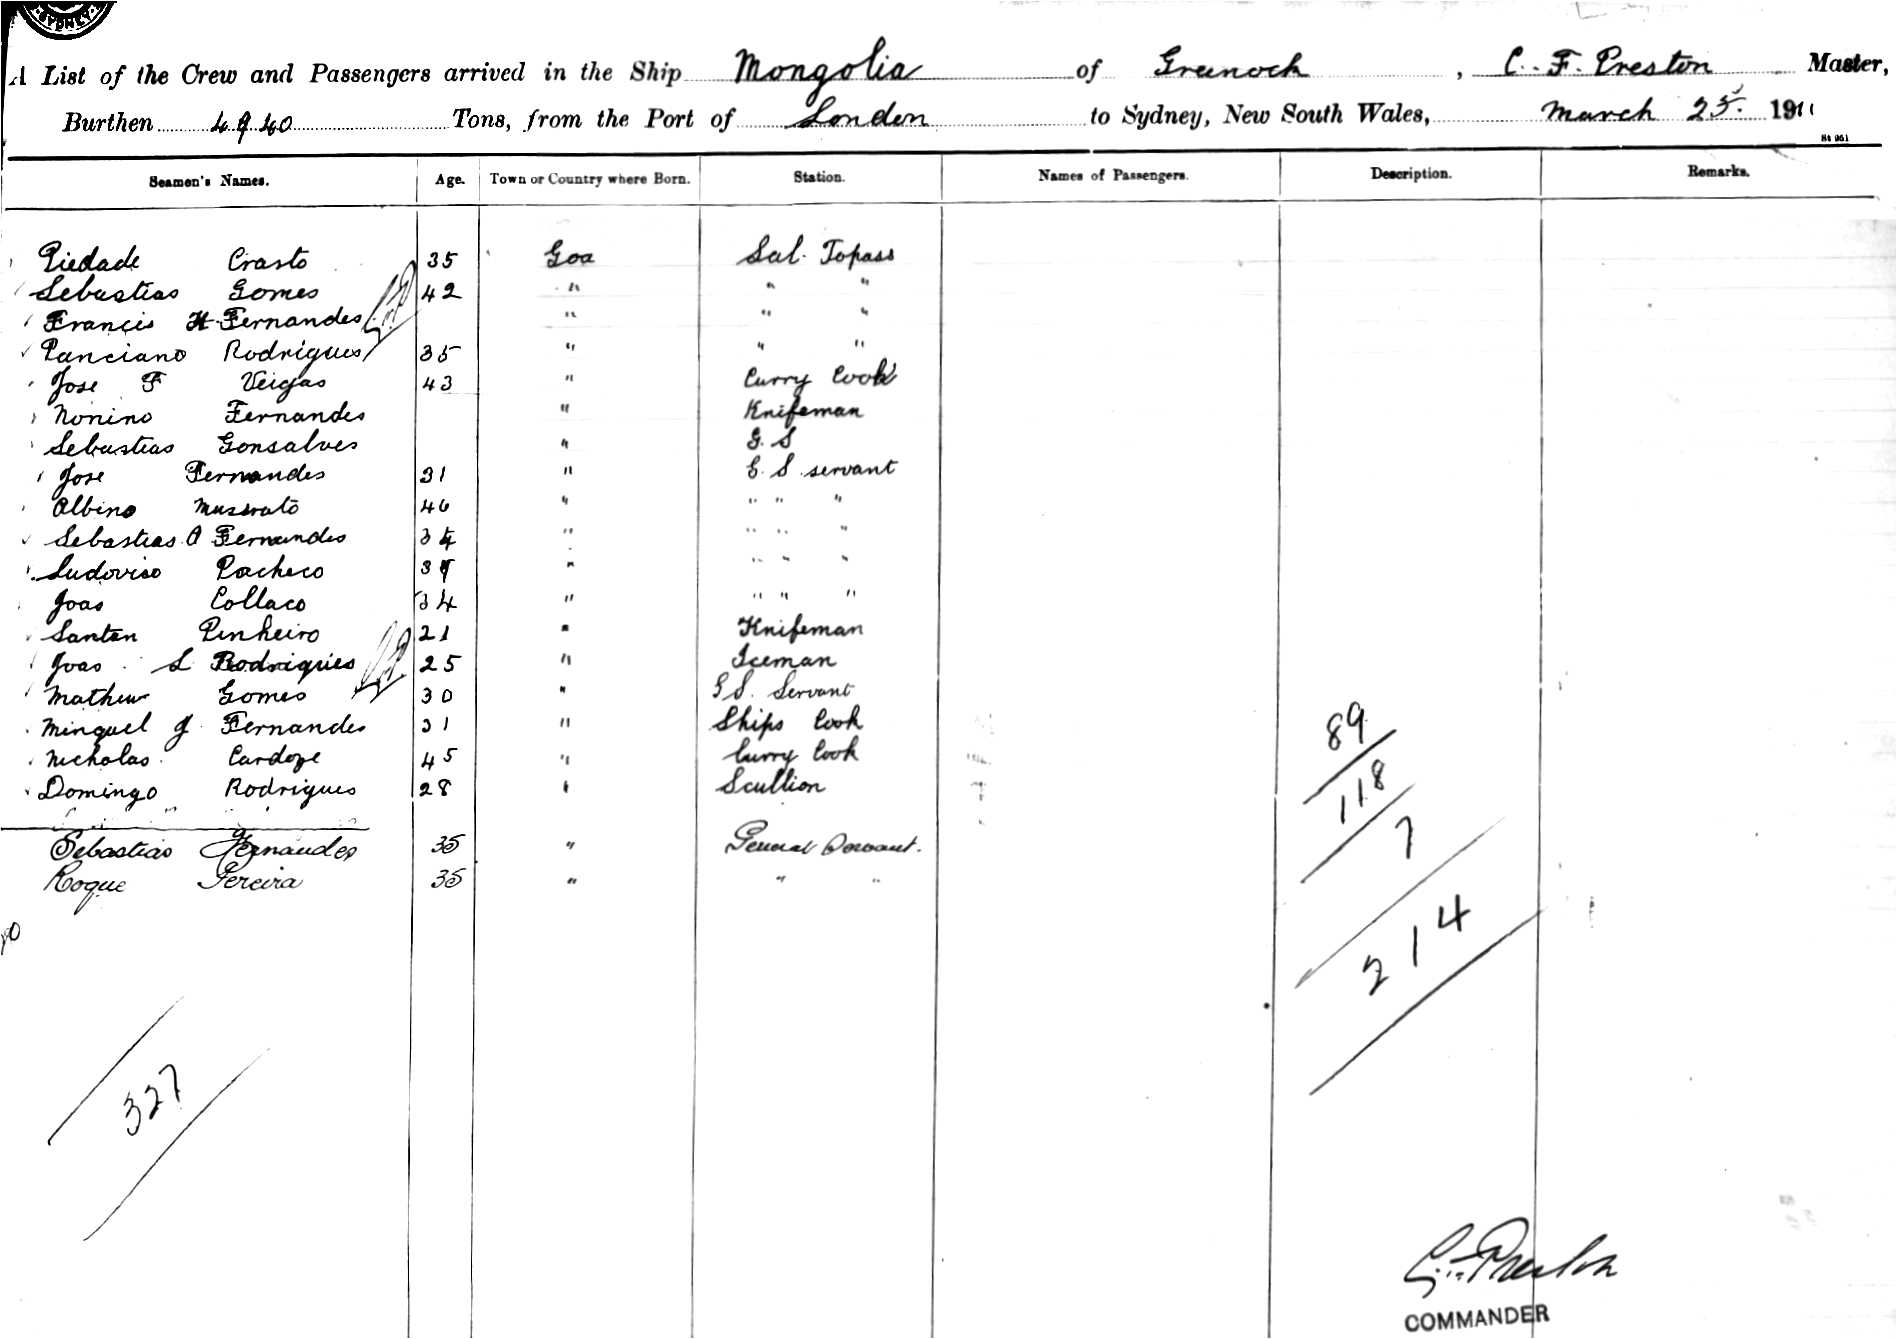 SYDNEY
A List of the Crew and Passengers arrived in the Ship Mongolia of Greenock, C. F. Preston Master,
Burthen 4940 Tons, from the Port of London to Sydney, New South Wales, March 25 1911
St 961
Seamen's Names. Age. Town or Country where Born. Station. Names of Passengers. Description. Remarks.
Piedade Crasto 35 Goa Sal. Topass
Sebastiao Gomes 42 " " "
Francis H Fernandes " " "
Ponciano Rodrigues 35 " " "
Jose F Veigas 43 " Curry Cook
Nonino Fernandes " Knifeman
Sebastiao Gonsalves " G. S
Jose Fernandes 31 " G. S. servant
Albino 40 " " " "
Sebastiao A Fernandes 34 " " " "
Ludovico Pacheco " " " "
Joao Collaco 34 " " " "
Santan Pinheiro 21 " Knifeman
Joao L Rodrigues 25 " Iceman
Mathew Gomes 30 " G S. Servant
Minguel J Fernandes 31 " Ships Cook
Nicholas Cardoze 45 " Curry Cook
Domingo Rodrigues 28 " Scullion
Sebastiao Fernandes 35 " General Servant.
Roque Pereira 35 " " "
89
118
7
214
327
C. F. Preston
COMMANDER